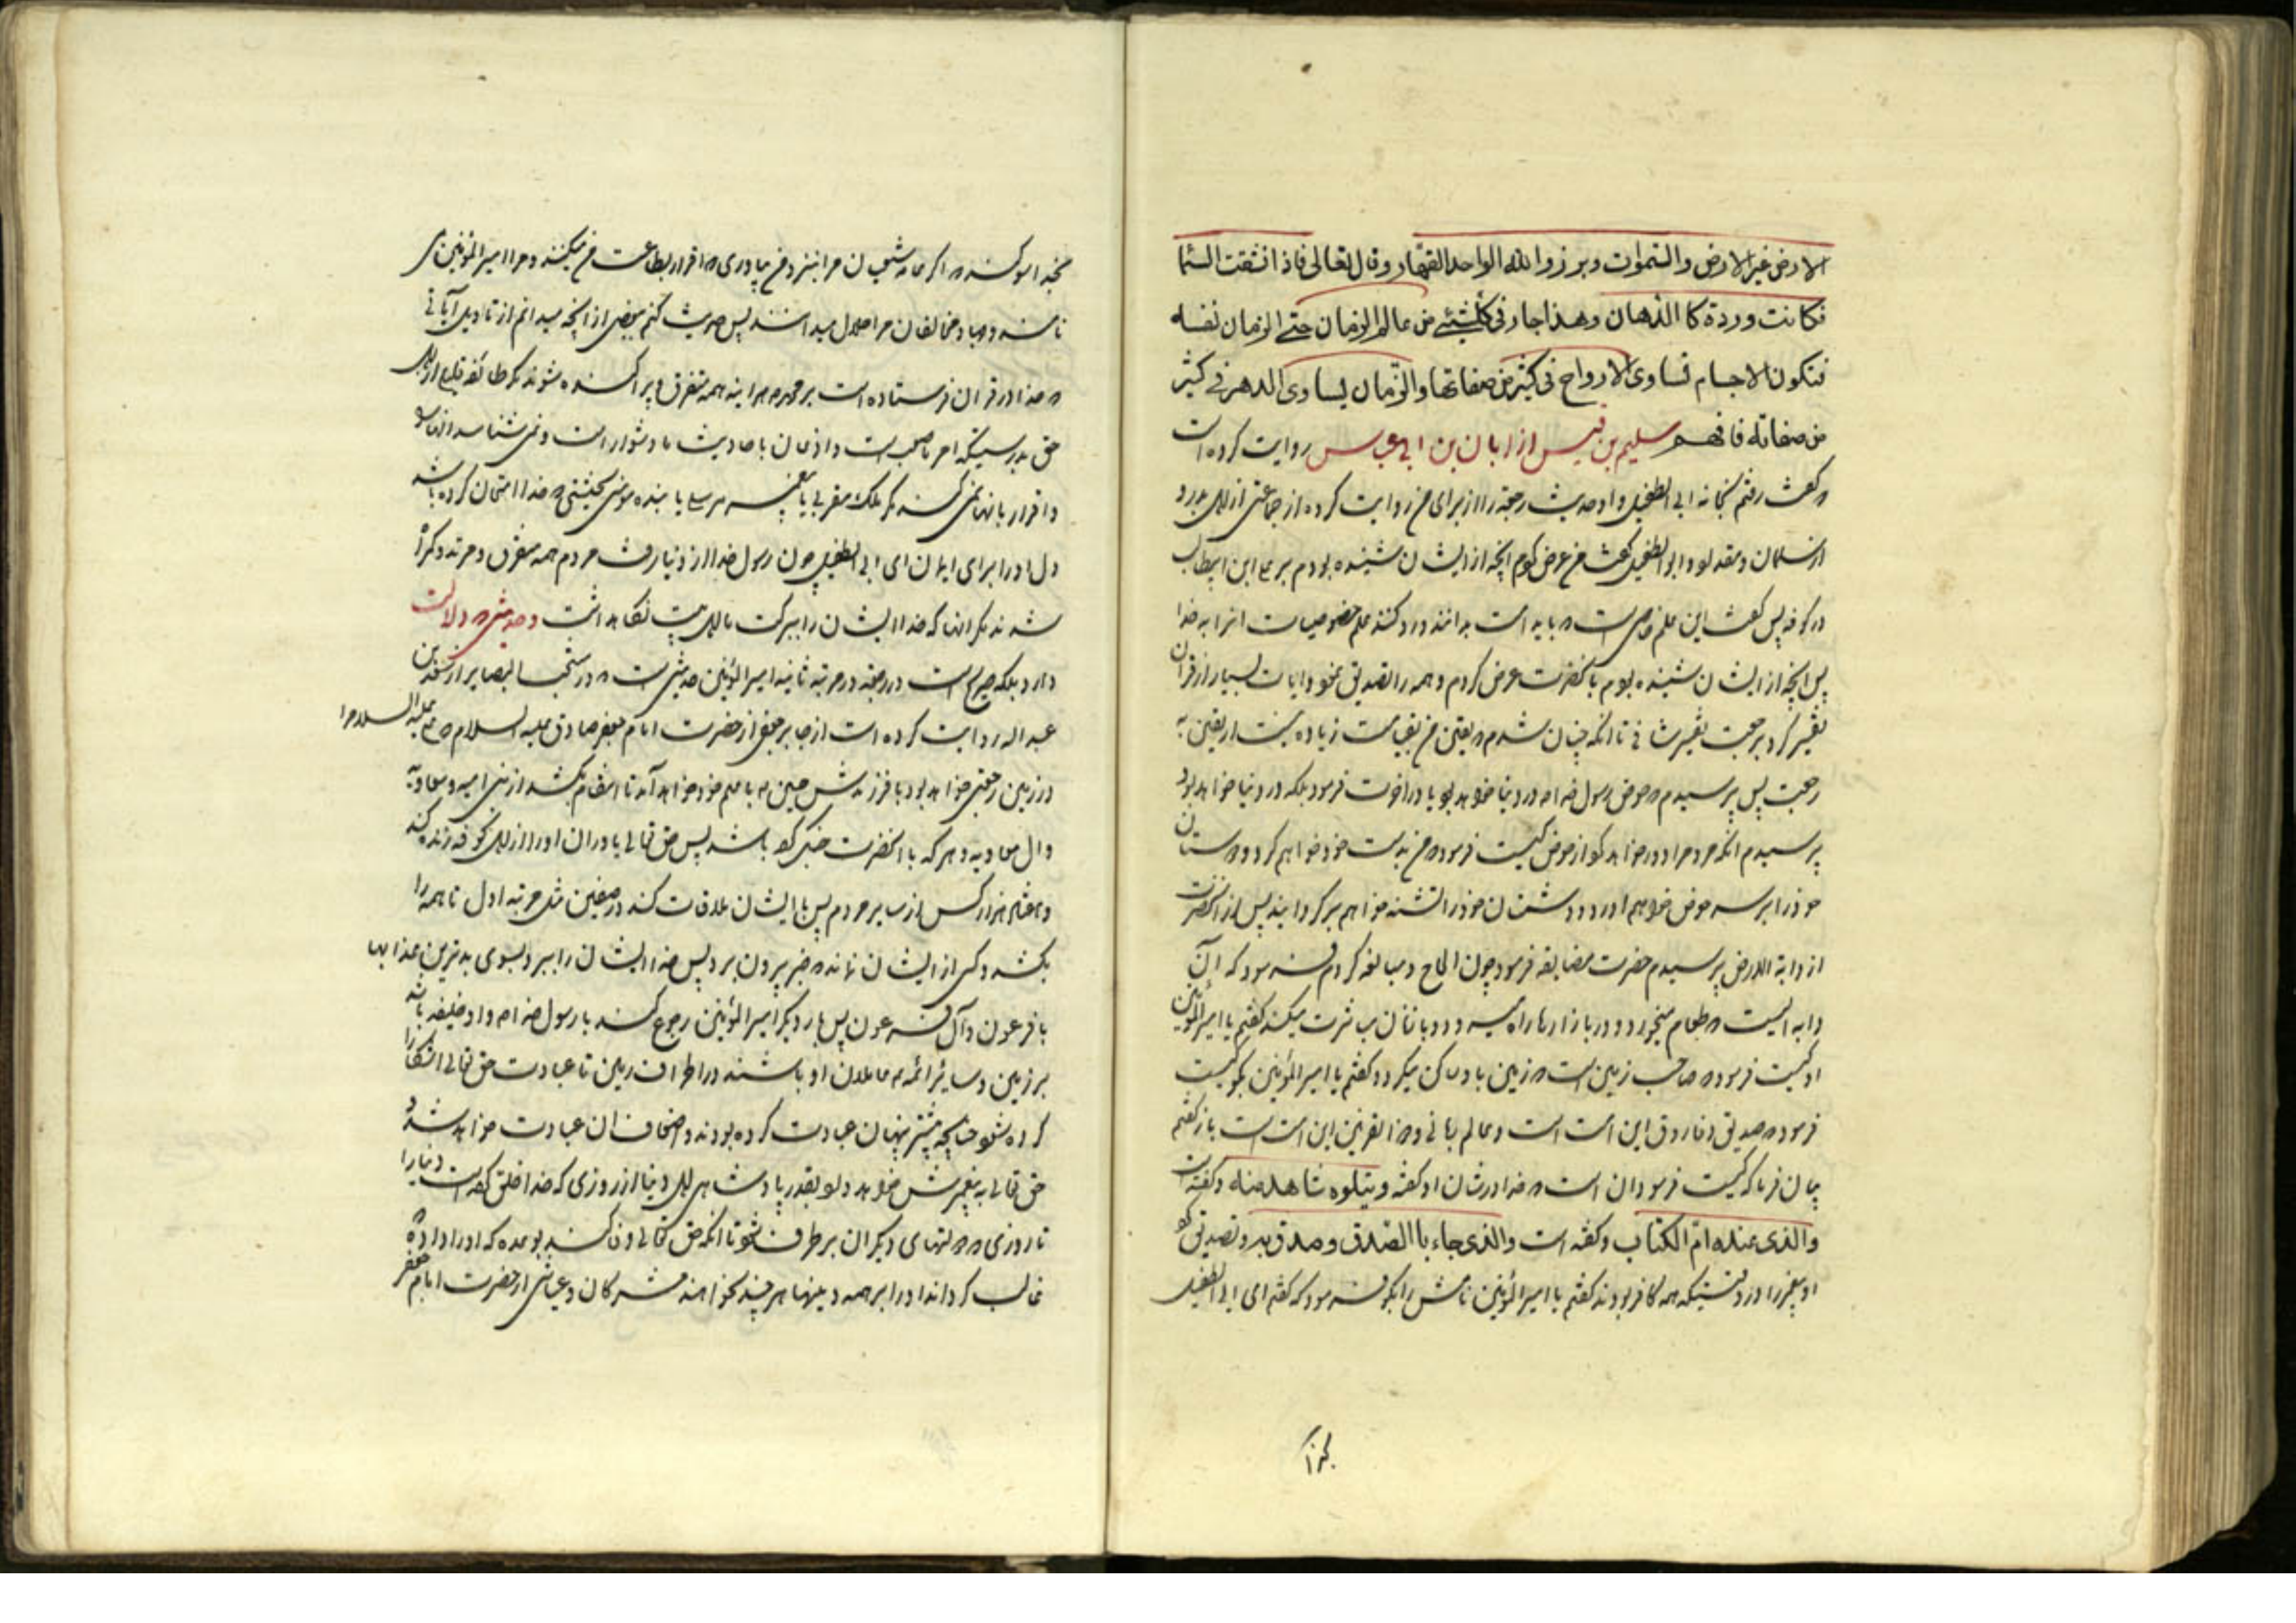 الارض غیر الارض والسموات وبرزوا لله الواحد القهار وقال تعالی فاذا انشقت السما
فکانت وردة کا الدهان وهذا جار فی کلشیئ من عالم الزمان حتی الزمان نفسه
فتکون الاجسام تساوی الارواح فی کثیر من صفاتها والزمان یساوی الدهر فی کثیر
من صفاته فافهم سلیم بن قیس از ابان بن ابی عیاس روایت کرده است
که گفت رفتم بخانه ابی الطفیل و او حدیث رجعترا از برای من روایت کرد از جماعتی از اهل بدر و
از سلمان و مقداد و ابو الطفیل گفت من عرض کردم آنچه از ایشان شنیده بودم بر علی ابن ابیطالب
در کوفه پس گفت این علم خاصی است که باید امت بدانند و رد کنند علم خصوصیات انرا به خدا
پس آنچه از ایشان شنیده بودم بآنحضرت عرض کردم و همه را تصدیق نمود و ایات بسیار از قرآن
تفسیر کرد برجعت تفسیر شافی تا آنکه چنان شدم که یقین من بقیامت زیاده نیست از یقین به
رجعت پس پرسیدم که حوض رسول خدا در دنیا خواهد بود یا در اخرت فرمود بلکه در دنیا خواهد بود
پرسیدم انکه مردم را دور خواهد کرد از حوض کیست فرمود من بدست خود خواهم کرد و دوستان
خودرا بر سر حوض خواهم اورد و دشمنان خودرا تشنه خواهم برگردانید پس از آنحضرت
از دابة الارض پرسیدم حضرت مضایقه فرمود چون الحاح و مبالغه کردم فرمود که آن
دابه ایست که طعام میخورد و در بازارها راه میرود و با زنان مباشرت میکند گفتم یا امیر المؤمنین
او کیست فرمود صاحب زمین است که زمین باو ساکن میگردد گفتم یا امیر المؤمنین بگو کیست
فرمود که صدیق و فاروق این امت است و عالم ربانی و ذو القرنین این امت است باز گفتم
بیان فرما که کیست فرمود ان است که خدا در شان او گفته ویتلوه شاهد منه و گفته است
والذی عنده ام الکتاب و گفته است والذی جاء باالصدق وصدق به و تصدیق کرد
او پیغمبر را در وقتیکه همه کافر بودند گفتم یا امیر المؤمنین نامش را بگو فرمود که گفتم ای ابی الطفیل
بخدا سوگند که اگر عامه شیعیان مرا بنزد من بیاوری که اقرار بطاعت من میکنند و مرا امیر المؤمنین می
نامند و جهاد مخالفان مرا حلال میدانند پس حدیث کنم ببعضی از آنچه میدانم از تاویل آیاتی
که خدا در قران فرستاده است بر محمد هرآینه همه متفرق و پراکنده شوند مگر طائفه قلیلی از اهل
حق بدرستیکه امر ما صعب است و اذعان باحادیث ما دشوار است و نمی شناسد انها را
و اقرار بانها نمی کند مگر ملک مقربی یا پیغمبر مرسلی یا بنده مؤمنی نجیبی که خدا امتحان کرده باشد
دل اورا برای ایمان ای ابی الطفیل چون رسول خدا از دنیا رفت مردم همه متفرق و مرتد و گمراه
شدند مگر انها که خدا ایشان را ببرکت ما اهل بیت نگاه داشت و حدیثی که دلالت
دارد بلکه صریح است در رجعت در مرتبه ثانیه امیر المؤمنین حدیثی است که در منتخب البصایر از سعد بن
عبد اله روایت کرده است از جابر جعفی از حضرت امام جعفر صادق علیه السلام که علی علیه السلام را
در زمین رجعتی خواهد بود با فرزندش حسین که با علم خود خواهد آمد تا انتقام بکشد از بنی امیه و معاویه
و ال معاویه و هر که با انحضرت جنگ کرده باشد پس حق تعالی یاوران اورا از اهل کوفه زنده کند
و هفتاد هزار کس از سایر مردم پس با ایشان ملاقات کند در صفین مثل مرتبه اول تا همه را
بکشد و کسی از ایشان نماند که خبر بیرون برد پس خدا ایشان را ببرد بسوی بدترین عذابها
با فرعون و آل فرعون پس بار دیگر امیر المؤمنین رجوع کند با رسول خدا و او خلیفه باشد
بر زمین و سایر ائمه عاملان او باشند در اطراف زمین تا عبادت حق تعالی آشکارا
کرده شود چنانچه پیشتر پنهان عبادت کرده بودند و اضعاف ان عبادت خواهد شد و
حق تعالی به پیغمبرش خواهد داد بقدر پادشاهی اهل دنیا از روزی که خدا خلق کرده است دنیا را
تا روزی که دولتهای دیگران بر طرف شود تا آنکه حق تعالی وفا کند بوعده که اورا داده که
غالب گرداند اورا بر همه دینها هر چند نخواهند مشرکان و عیاشی از حضرت امام جعفر